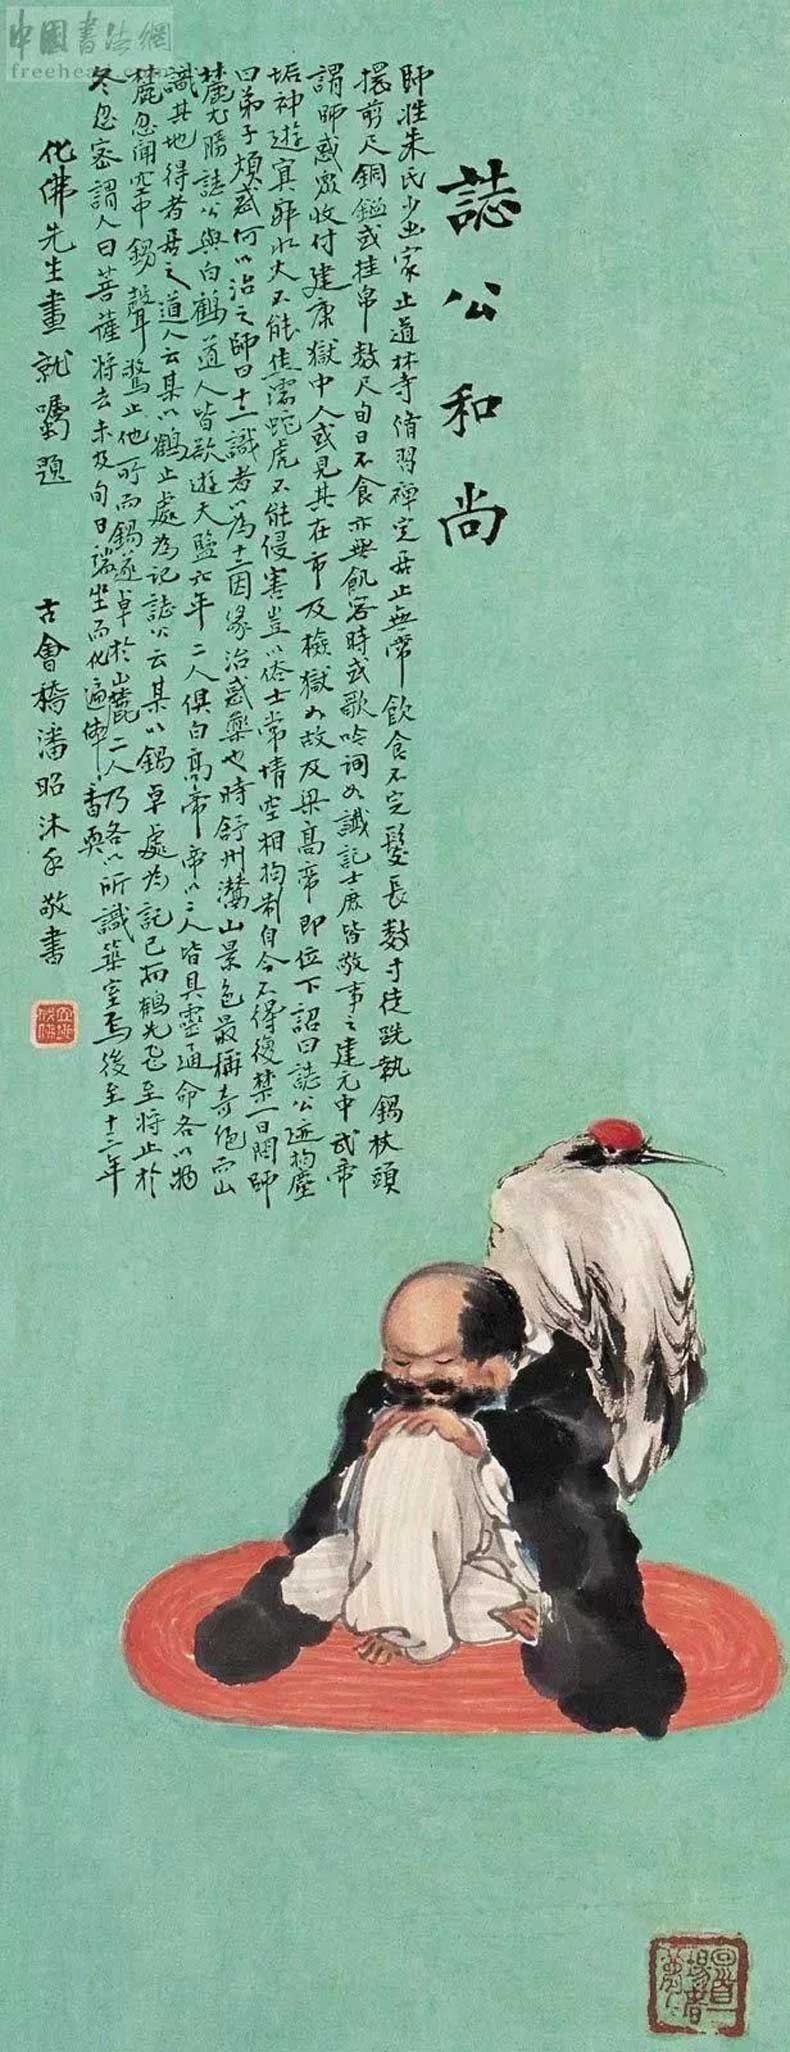 誌公和尚
師姓朱氏少出家止道林寺脩習禪定居止無常飲食不定髮長數寸徒跣執錫杖頭
擐剪尺銅鑑或挂帛數尺旬日不食亦無飢容時或歌吟詞如讖記士庶皆敬事之建元中武帝
謂師惑眾收付建康獄中人或見其在市及檢獄如故及梁高帝即位下詔曰誌公迹拘塵
垢神遊冥寂水火不能焦濡蛇虎不能侵害豈以俗士常情空相拘制自今不得復禁一日問師
曰弟子煩惑何以治之師曰十二識者以為十二因緣治惑藥也時舒州灊山景色最稱奇絕而山
麓尤勝誌公與白鶴道人皆欲遊天監六年二人俱白高帝帝以二人皆具靈通命各以物
識其地得者居之道人云某以鶴止處為記誌公云某以錫卓處為記已而鶴先飛至將止於
麓忽聞空中錫聲驚止他所而錫遂卓於山麓二人乃各以所識築室焉後至十三年
冬忽密謂人曰菩薩將去未及旬日端坐而化遍體香耎
化佛先生畫就囑題
古會稽潘昭沐手敬書
中国書法網
freehead.com